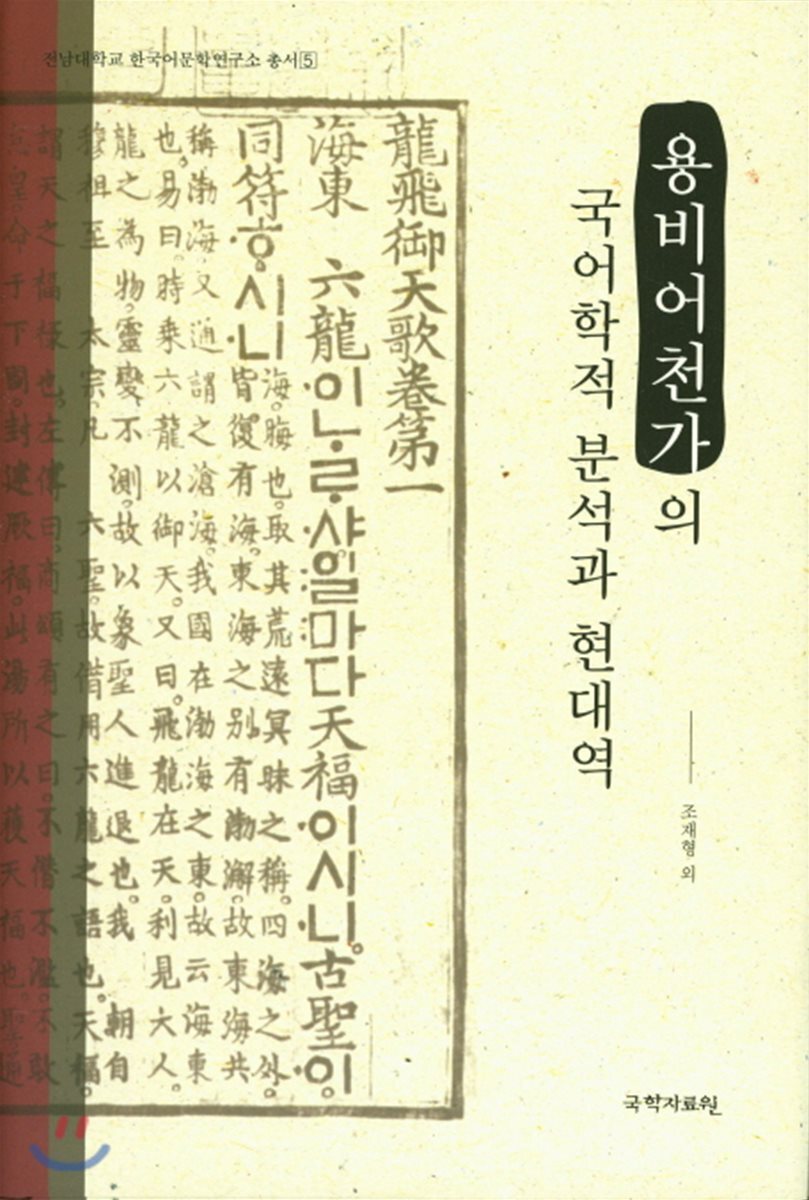 전남대학교 한국어문학연구소 총서 5
용비어천가의
국어학적 분석과 현대역
조재형 외
龍飛御天歌卷第一
海東 六龍·이ᄂᆞᄅᆞ·샤:일:마다天福·이시·니。古聖·이。
同符·ᄒᆞ시·니
海。晦也。取其荒遠冥昧之稱。四海之外。
皆復有海。東海之别。有渤澥。故東海共
稱渤海。又通謂之滄海。我國在渤海之東。故云海東
也。易曰。時乘六龍以御天。又曰。飛龍在天。利見大人。
龍之為物。靈變不測。故以象聖人進退也。我 朝自
穆祖至 太宗。凡 六聖。故借用六龍之語也。天福。
謂天之福祿也。左傳曰。商頌有之曰。不僭不濫。不敢
皇。命于下國。封建厥福。此湯所以獲天福也。聖
국학자료원